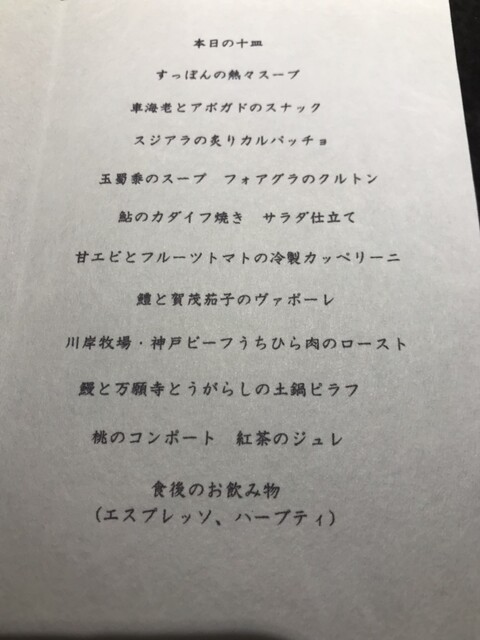 本日の十皿
すっぽんの熱々スープ
車海老とアボガドのスナック
スジアラの炙りカルパッチョ
玉蜀黍のスープ　フォアグラのクルトン
鮎のカダイフ焼き　サラダ仕立て
甘エビとフルーツトマトの冷製カッペリーニ
鱧と賀茂茄子のヴァポーレ
川岸牧場・神戸ビーフうちひら肉のロースト
鰻と万願寺とうがらしの土鍋ピラフ
桃のコンポート　紅茶のジュレ
食後のお飲み物
（エスプレッソ、ハーブティ）